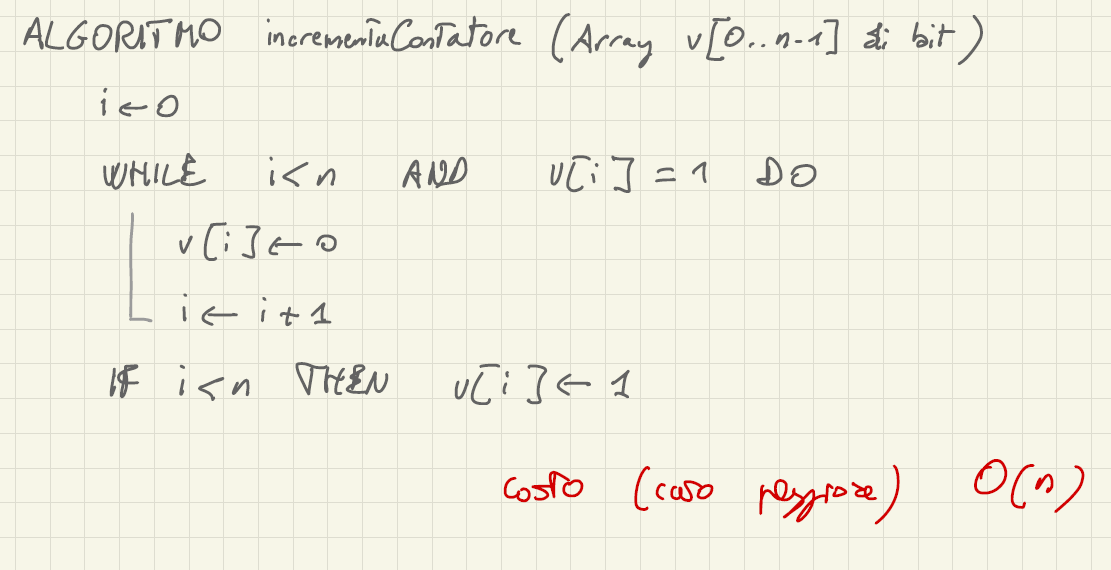 ALGORITMO incrementaContatore (Array v[0..n-1] di bit)
i ← 0
WHILE i < n AND v[i] = 1 DO
v[i] ← 0
i ← i + 1
IF i < n THEN v[i] ← 1
costo (caso peggiore) O(n)